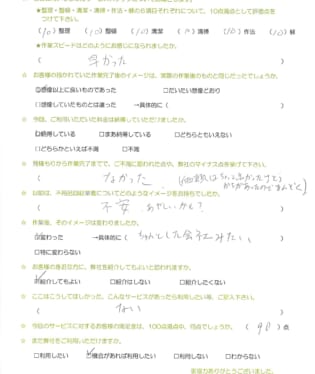 ★整理・整頓・清潔・清掃・作法・躾の6項目それぞれについて、10点満点として評価点を
つけて下さい。
(10) 整理 (10) 整頓 (10) 清潔 (10) 清掃 (10) 作法 (10) 躾
★作業スピードはどのようにお感じになられましたか。
( 早かった )
☆ お客様の描かれていた作業完了後のイメージは、実際の作業後のものと同じだったでしょうか。
☑想像以上に良いものであった □だいたい想像どおり
□想像していたものとは違った →具体的に( )
☆ 今回、ご利用いただいた料金は納得していただけましたか。
☑納得している □まあ納得している □どちらともいえない
□どちらかといえば不満 □不満
☆ 見積もりから作業完了までで、ご不満に思われた点や、弊社のマイナス点を挙げて下さい。
( なかった )
☆ 以前は、 業者についてどのようなイメージをお持ちでしたか。
( 不安 あやしいかも? )
☆ 作業後、そのイメージは変わりましたか。
☑変わった →具体的に( ちゃんとした会社みたい )
□特に変わらない
☆ お客様の身近な方に、弊社を紹介してもよいと思われますか。
☑紹介してもよい □紹介はしない □紹介したくない
☆ ここはこうしてほしかった、こんなサービスがあったら利用したい等、ご記入下さい。
( ない )
☆ 今回のサービスに対するお客様の満足度は、100点満点中、何点でしょうか。 ( 90 ) 点
☆ また弊社をご利用いただけますか。
□利用したい ☑機会があれば利用したい □利用しない □わからない
ご協力ありがとうございました。